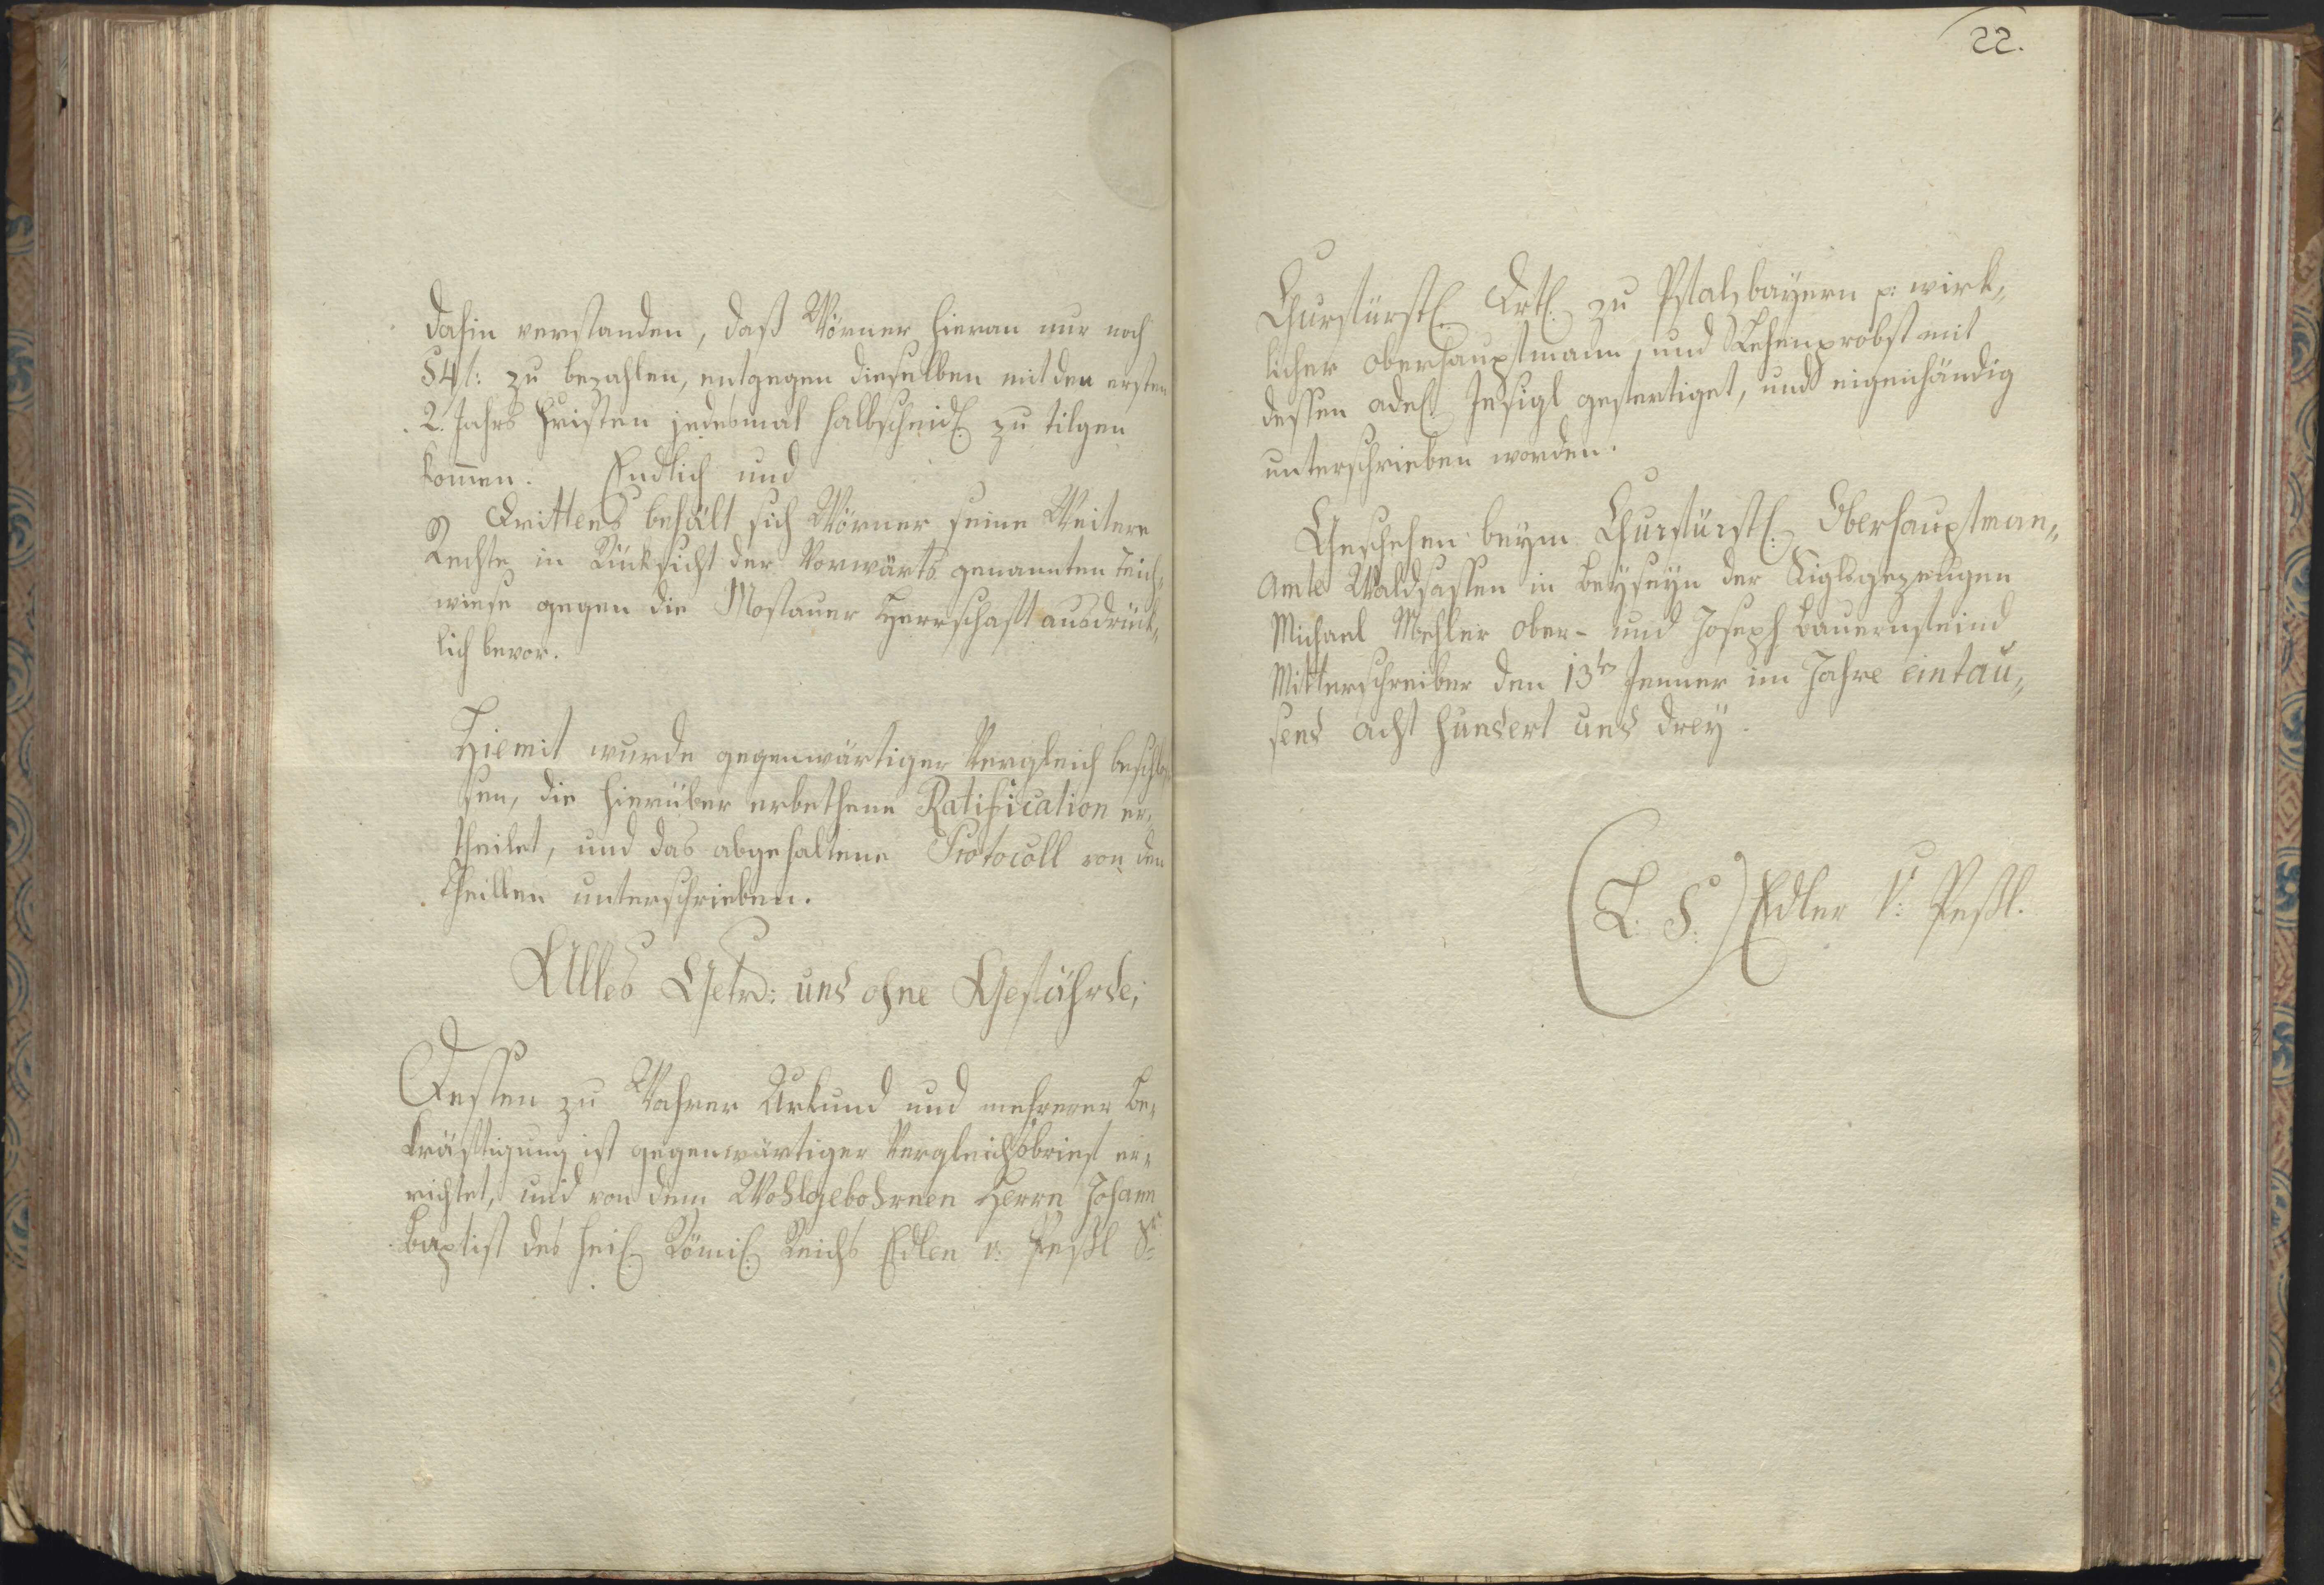 dahin verstanden, daß Wörner hieran nur noch
54 f: zu bezahlen, entgegen dieselben mit den ersten
2. Jahrs Fristen jedesmal halbscheidl. zu tilgen
kom̄en. Endlich und
Drittens behält sich Wörner seine Weitere
Rechte in Rücksicht der Vorwärts genannten Teich„
wiese gegen die Mostauer Herrschaft ausdrück„
lich bevor.
Hiemit wurde gegenwärtiger Vergleich beschlos„
sen, die hierüber erbethene Ratification er„
theilet, und das abgehaltene Protocoll von den
Theillen unterschrieben.
Alles Getr: und ohne Gefährde;
Dessen zu Wahrer Urkund und mehrerer Be„
kräftigung ist gegenwärtiger Vergleichsbrief er„
richtet, und von dem Wohlgebohrnen Herrn Johann
Baptist des heil. Römil. Reichs Edlen v: Peßl Sr
22.
Churfürstl. Drtl. zu Pfalzbayern p: wirk„
licher Oberhauptmann, und Lehenprobst mit
dessen adel. Insigl gefertiget, und eigenhändig
unterschrieben worden.
Geschehen beym Churfürstl: Oberhauptman„
Amte Waldsassen in Beyseyn der Siglsgezeugen
Michael Mehler Ober- und Joseph Bauernfeind
Mitterschreiber den 13ten Jenner im Jahre eintau„
send acht hundert und drey.
(L: S:) Edler v: Peßl.